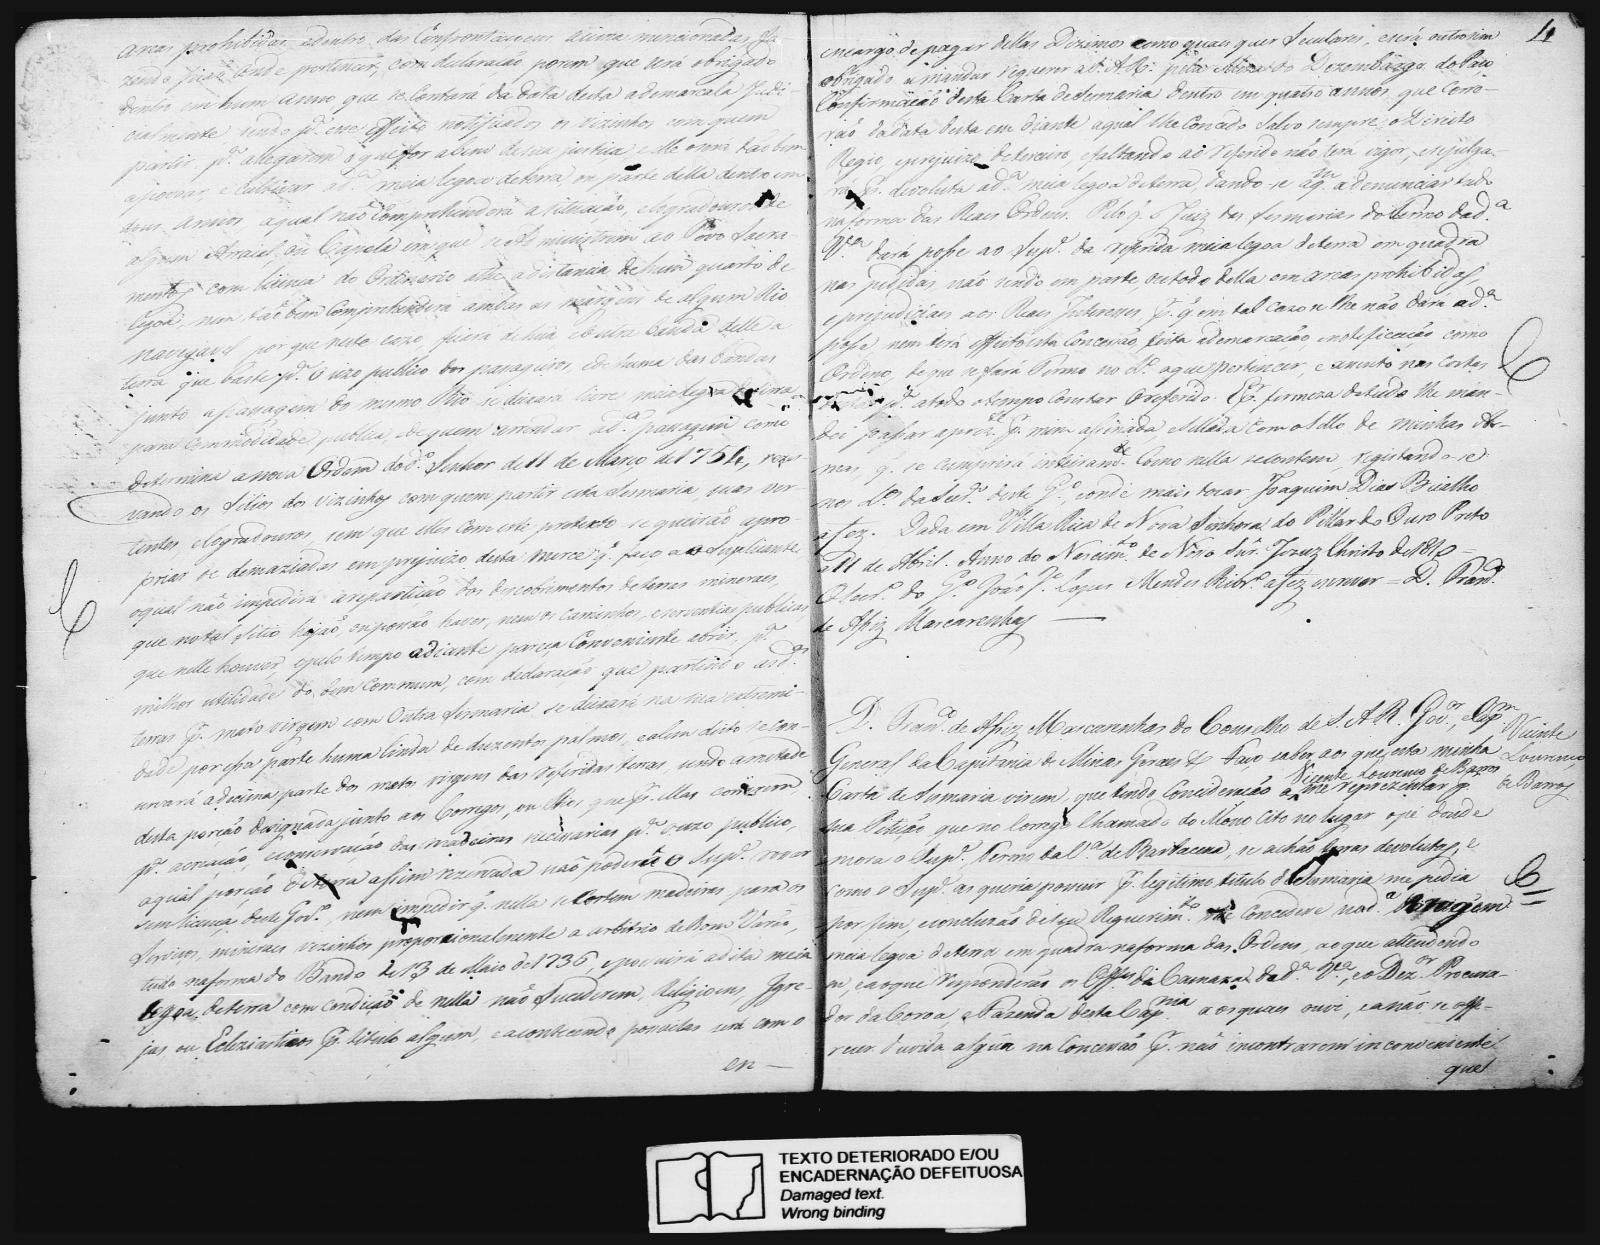 areas prohibidas, e dentro das Confrontaçoens acima mencionadas fa-
zendo pião onde pertencer, com declaração porem que será obrigado
dentro em hum anno que se Contará da data desta a demarcala Judi-
cialmente sendo pª. esse effeito notificados os vizinhos com quem
partir, pª. allegarem o que for a bem de sua justiça e elle o será tãobem
a povoar, e Cultivar a dª. meia legoa de terra ou parte della dentro em
dous annos, a qual não Comprehenderá a situação, e logradouros de
algum Arraial, ou Capela em que se ministrem ao Povo Sacra-
mentos com licença do Ordinario athe a distancia de hum quarto de
legoa, nem tão bem Comprehenderá ambas as margens de algum Rio
navegavel por que neste cazo ficará de huã e outra banda delle a
terra que baste pª. o uzo publico dos passageiros, e de huma das bandas
junto a passagem do mesmo Rio se deixará livre meia legoa de terra
para Commodidade publica, e de quem arrendar a dª. passagem como
determina a nova Ordem do dº. Senhor de 11 de Março de 1754, reser-
vando os sitios dos vizinhos com quem partir esta Sesmaria, suas ver-
tentes, e logradouros, sem que elles com este pretexto se queirão apro-
priar de demaziadas em prejuizo desta merce q̃. faço ao Suplicante
o qual não impedirá a repartição dos descobrimentos de terras mineraes
que no tal sitio hajão, ou possão haver, nem os Caminhos, e serventias publicas,
que nelle houver, e pelo tempo adiante pareça Conveniente abrir, pª.
milhor utilidade do bem Commum, com declaração que partindo as dªˢ.
terras pr. mato virgem com outra Sesmaria se deixará na sua extremi-
dade por essa parte huma linda de duzentos palmos, e alem disto se con-
servará a decima parte dos matos virgens das referidas terras, sendo a metade
desta porção designada junto aos Corregos, ou Rios que pr. ellas correrem
pª. a creação, e conservação das madeiras necessarias pª. o uzo publico,
a qual porção de terra assim rezervada não poderá o Supe. rossar
sem licença deste Govº., nem impedir q̃. nella se Cortem madeiras para os
serviços, mineraes vizinhos proporcionalmente a arbitrio de Bom Varão,
tudo na forma do Bando de 13 de Maio de 1736, e possuirá a dita meia
legoa de terra com condição de nella não Sucederem, Religioens, Igre-
jas ou Eclesiasticos pr. titulo algum, e acontecendo possuilas será com o
en-
11
encargo de pagar dellas Dizimos como quaes quer Seculares, e será outrosim
obrigado a mandar requerer a S. A. R. pela Meza do Dezembargo do Paço
Confirmação desta Carta de Sesmaria dentro em quatro annos, que Corre-
rão da data desta em diante, a qual lhe Concedo Salvo sempre o Direito
Regio, e prejuizo de terceiro, e faltando ao referido não terá vigor, e se julga-
rá pr. devoluta a dª. meia legoa de terra, dando-se a qm. a denunciar tudo
na forma das Reaes Ordens. Pelo q̃. o Juiz das Sesmarias do Termo da dª.
Vª. dará posse ao Supe. da referida meia legoa de terra em quadra
nas pedidas, não sendo em parte ou todo della em areas prohibidas
e prejudiciaes aos Reaes Interesses pr. q̃. em tal Cazo se lhe não dará a dª.
posse, nem terá effeito esta Concessão, feita a demarcação e notificação como
Ordeno, de que se fará Termo no Lº. a que pertencer, e assento nas Costas
desta pª. a todo o tempo Constar o referido. Pr. firmeza de tudo lhe man-
dei passar a prezte. pr. mim assinada, e Sellada com o Sello de minhas Ar-
mas, q̃. se cumprirá inteiramte. como nella se contem, registando-se
nos Lºˢ. da Secrª. deste Gº., e onde mais tocar. Joaquim Dias Bicalho
a fez. Dada em Villa Rica de Nossa Senhora do Pillar do Ouro Preto
a 11 de Abril. Anno do Nascimto. de Nosso Snr. Jezuz Christo de 1810—
O Secrº. do Gº. João Je. Lopes Mendes Ribrº. a fez escrever = D. Franº.
de Assiz Mascarenhas
D. Franº. de Assiz Mascarenhas do Conselho de S. A. R. Gov.or, e Capm.
General da Capitania de Minas Geraes & Faço saber aos que esta minha
Carta de Sesmaria virem, que tendo Consideração a me reprezentar pr.
Vicente Lourenço de Barros
sua Petição que no Corrego chamado do Mono Cito no lugar o pé donde
mora o Supe. Termo da Vª. de Barbacena, se achão terras devolutas, e
como o Supe. as queria possuir pr. legitimo titulo de Sesmaria, me pedia
por fim, e concluzão de seu Requerimto. lhe concedece na dª. Paragem
meia legoa de terra em quadra na forma das Ordens, ao que attendendo
eu, e ao que responderão os Offes. da Camara da dª. Vª., e o Dezor. Procura-
dor da Coroa, e Fazenda desta Capnia. a os quaes ouvi, e a não se offe-
recer duvida algũa na Concessão pr. não incontrarem inconveniente
que
Vicente
Lourenço
de Barros
TEXTO DETERIORADO E/OU
ENCADERNAÇÃO DEFEITUOSA
Damaged text.
Wrong binding